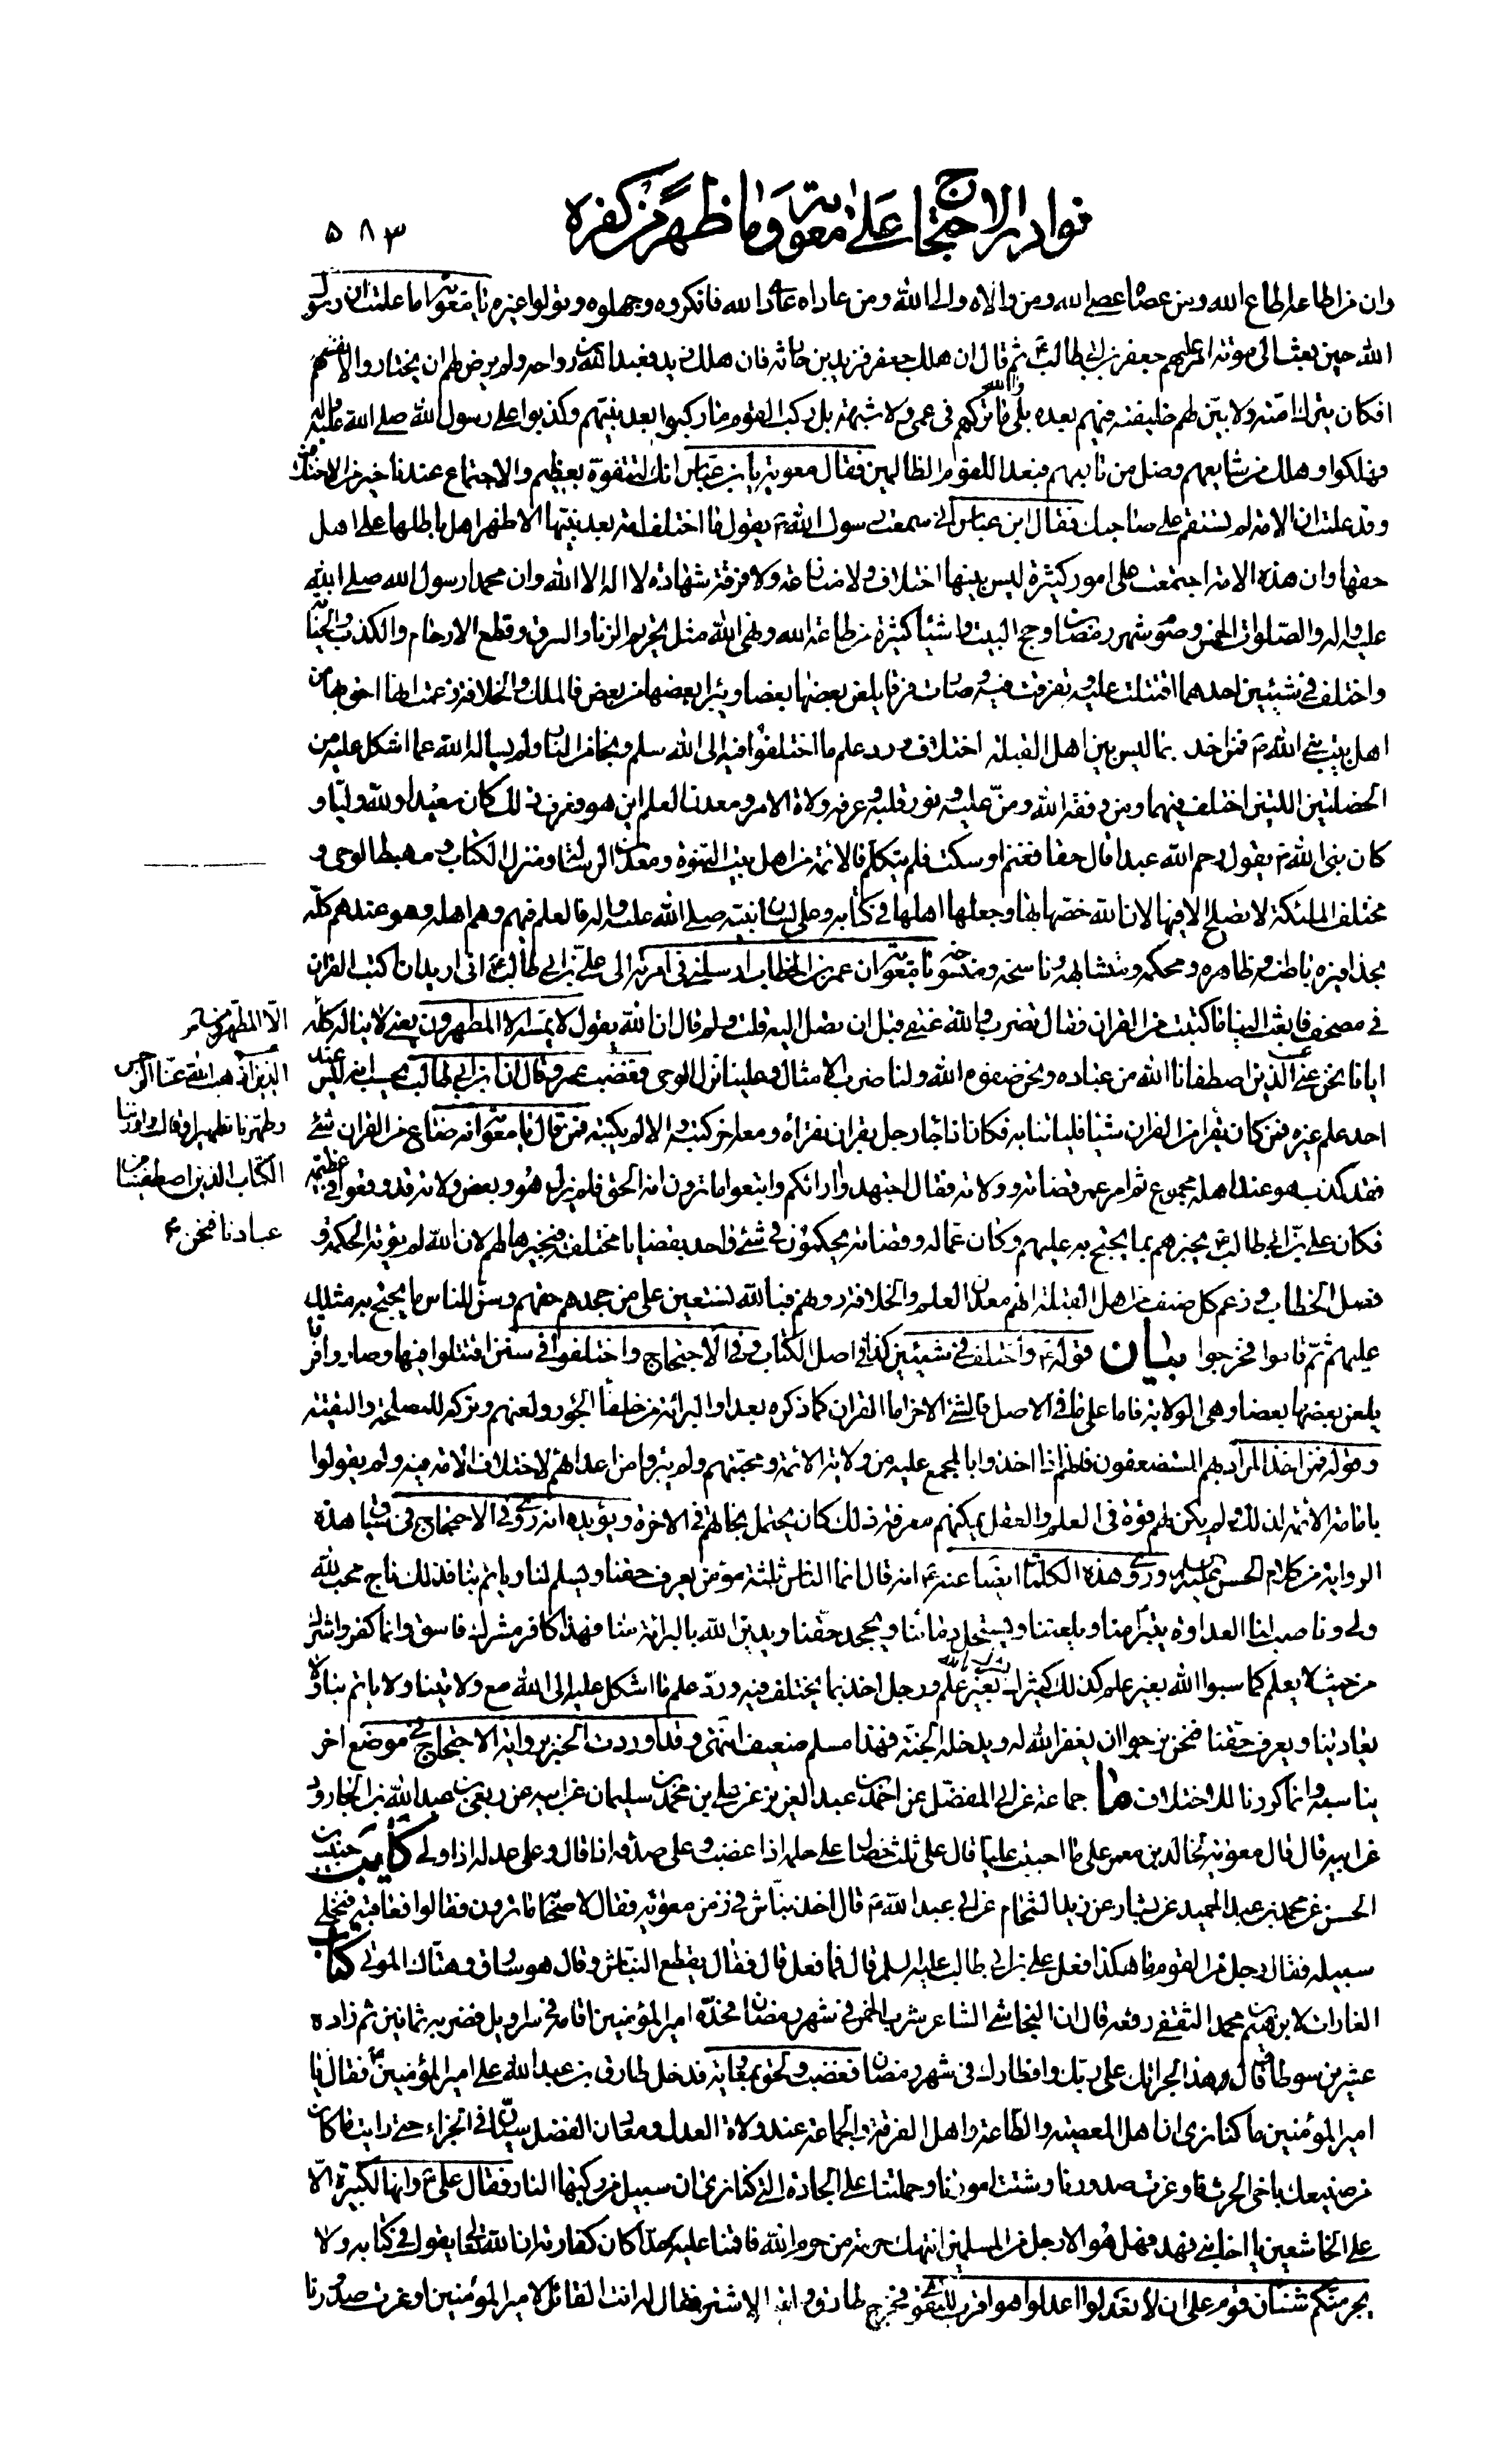 نوادر الاحتجاج على معوية وما ظهر من كفره
٥٨٣
وان من اطاعه اطاع الله ومن عصاه عصى الله ومن والاه والى الله ومن عاداه عادا الله فانكروه وجهلوه وتولوا غيره يا معوية اما علمت ان رسول
الله حين بعث الى موتة امر عليهم جعفر بن ابي طالب ثم قال ان هلك جعفر فزيد بن حارثة فان هلك زيد فعبد الله بن رواحة ولم يرض لهم ان يختاروا لانفسهم
افكان يترك امته ولا يبين لهم خليفته فيهم بعده بلى والله ما تركهم في عمى ولا شبهة بل ركب القوم ما ركبوا بعد نبيهم وكذبوا على رسول الله صلى الله عليه واله
فهلكوا وهلك من شايعهم وضل من تابعهم فبعدا للقوم الظالمين فقال معوية يا بن عباس انك لتتفوه بعظيم والاجتماع عندنا خير من الاختلاف
وقد علمت ان الامة لم تستقم على صاحبك فقال ابن عباس اني سمعت رسول الله ص يقول ما اختلف امة بعد نبيها الا ظهر اهل باطلها على اهل
حقها وان هذه الامة اجتمعت على امور كثيرة ليس بينها اختلاف ولا منازعة ولا فرقة شهادة لا اله الا الله وان محمدا رسول الله صلى الله
عليه واله والصلوات الخمس وصوم شهر رمضان وحج البيت واشياء كثيرة من طاعة الله ونهى الله مثل تحريم الزنا والسرق وقطع الارحام والكذب والخيانة
واختلف في شيئين احدهما اقتتلت عليه وتفرقت فيه وصارت فرقا يلعن بعضها بعضا ويبرا بعضها من بعض فالملك والخلافة زعمت انها احق بها من
اهل بيت نبي الله ص فمن اخذ بما ليس بين اهل القبلة اختلاف ورد علم ما اختلفوا فيه الى الله سلم ونجا من النار ولم يساله الله عما اشكل عليه من
الخصلتين اللتين اختلف فيهما ومن وفقه الله ومن عليه ونور قلبه وعرفه ولاة الامر ومعدن العلم اين هو فعرف ذلك كان سعيدا ولله وليا و
كان نبي الله ص يقول رحم الله عبدا قال حقا فغنم او سكت فلم يتكلم فالائمة من اهل بيت النبوة ومعدن الرسالة ومنزل الكتاب ومهبط الوحي و
مختلف الملئكة لا تصلح الا فيها لان الله خصها بها وجعلها اهلها في كتابه وعلى لسان نبيه صلى الله عليه واله فالعلم فيهم وهم اهله وهو عندهم كله
بحذافيره باطنه وظاهره ومحكمه ومتشابهه وناسخه ومنسوخه يا معوية ان عمر بن الخطاب ارسلني في امرته الى علي بن ابي طالب ع اني اريد ان اكتب القران
في مصحف فابعث الينا ما كتبت من القران فقال تضرب والله عنقي قبل ان يصل اليه قلت ولم قال ان الله يقول لا يمسه الا المطهرون يعني لا يناله كله
الا المطهرون
ايانا نحن عنى الذين اصطفانا الله من عباده ونحن صفوة الله ولنا ضرب الامثال وعلينا نزل الوحي فغضب عمر وقال ان ابن ابي طالب يحسب انه ليس عند
الذين اذهب الله عنا الرجس
احد علم غيره فمن كان يقرا من القران شيئا فلياتنا به فكان اذا جاء رجل بقران يقراه ومعه اخر كتبه والا لم يكتبه فمن قال يا معوية انه ضاع من القران شئ
وطهرنا تطهيرا وقال واورثنا
فقد كذب هو عند اهله مجموع ثم امر عمر قضاته وولاته فقال اجتهدوا رائكم واتبعوا ما ترون انه الحق فلم يزل هو وبعض ولاته قد وقعوا في عظيمة
الكتاب الذين اصطفينا من
فكان علي بن ابي طالب ع يخبرهم بما يحتج به عليهم وكان عماله وقضاته يحكمون في شئ واحد بقضايا مختلفة فيجيزها لهم لان الله لم يؤته الحكمة و
عبادنا فنحن م
فصل الخطاب وزعم كل صنف من اهل القبلة انهم معدن العلم والخلافة دونهم فبالله نستعين على من جحدهم حقهم وسن للناس ما يحتج به مثلك
عليهم ثم قاموا فخرجوا بيان قوله ع واختلف في شيئين كذا في اصل الكتاب وفي الاحتجاج واختلفوا في سنن اقتتلوا فيها وصاروا فرقا
يلعن بعضها بعضا وهي الولاية فاما على ما في الاصل فالشئ الاخر اما القران كما ذكره بعد او البرائة من خلفاء الجور ولعنهم وتركه للمصلحة والتقية
وقوله فمن اخذ المراد بهم المستضعفون فانهم اذا اخذوا بالمجمع عليه من ولاية الائمة ومحبتهم ولم يتبرؤا من اعدائهم لاختلاف الامة فيه ولم يقولوا
بامامة الائمة لذلك ولم يكن لهم قوة في العلم والعقل يمكنهم معرفة ذلك كان يحتمل نجاتهم في الاخرة ويؤيده انه روى في الاحتجاج في سياق هذه
الرواية من كلام الحسن عليه السلم وروى هذه الكلمات ايضا عنه ع انه قال انما الناس ثلثة مؤمن يعرف حقنا ويسلم لنا وياتم بنا فذلك ناج محب لله
ولي وناصب لنا العداوة يتبرا منا ويلعننا ويستحل دمائنا ويجحد حقنا ويدين الله بالبرائة منا فهذا كافر مشرك فاسق وانما كفر واشرك
من حيث لا يعلم كما سبوا الله بغير علم كذلك يشرك بالله بغير علم ورجل اخذ بما يختلف فيه ورد علم ما اشكل عليه الى الله مع ولايتنا ولا ياتم بنا ولا
يعادينا ويعرف حقنا فنحن نرجوا ان يغفر الله له ويدخله الجنة فهذا مسلم ضعيف انتهى وقد اوردت الخبر برواية الاحتجاج في موضع اخر
يناسبه وانما كررنا للاختلاف ما جماعة عن ابي المفضل عن احمد بن عبد العزيز عن علي بن محمد بن سليمان عن ابيه عن ربعي بن عبد الله بن الجارود
عن ابيه قال قال معوية لخالد بن معمر على ما احببت عليا قال على ثلث خصال على حلمه اذا غضب وعلى صدقه اذا قال وعلى عدله اذا ولي كا حبيب بن
الحسن عن محمد بن عبد الحميد عن بشار عن زيد الشحام عن ابي عبد الله ع قال اخذ نباش في زمن معوية فقال لاصحابه ما ترون فقالوا نعاقبه ونخلي
سبيله فقال رجل من القوم ما هكذا فعل علي بن ابي طالب عليه السلم قال فما فعل قال فقال يقطع النباش وقال هو سارق وهتاك الموتى كتاب
الغارات لابراهيم بن محمد الثقفي رفعه قال ان النجاشي الشاعر شرب الخمر في شهر رمضان فحده امير المؤمنين اقامه في سراويل فضربه ثمانين ثم زاده
عشرين سوطا فقال وهذا لجراتك على ربك وافطارك في شهر رمضان فغضب ولحق بمعوية فدخل طارق بن عبد الله على امير المؤمنين ع فقال يا
امير المؤمنين ما كنا نرى ان اهل المعصية والطاعة واهل الفرقة والجماعة عند ولاة العدل ومعادن الفضل سيان في الجزاء حتى رايت ما كان
من صنيعك باخي الحرث فاوغرت صدورنا وشتت امورنا وحملتنا على الجادة التي كنا نرى ان سبيل من ركبها النار فقال علي ع وانها لكبيرة الا
على الخاشعين يا اخا بني نهد فهل هو الا رجل من المسلمين انتهك حرمة من حرم الله فاقمنا عليه حدا كان كفارته ان الله تعالى يقول في كتابه ولا
يجرمنكم شنئان قوم على ان لا تعدلوا اعدلوا هو اقرب للتقوى فخرج طارق ولقيه الاشتر فقال له انت القائل لامير المؤمنين اوغرت صدورنا